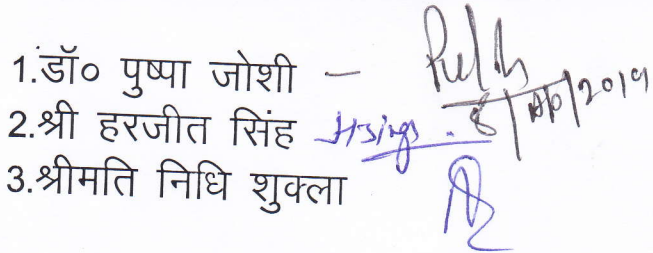 1.डॉ० पुष्पा जोशी –
2.श्री हरजीत सिंह Hsingh 8/10/2019
3.श्रीमति निधि शुक्ला